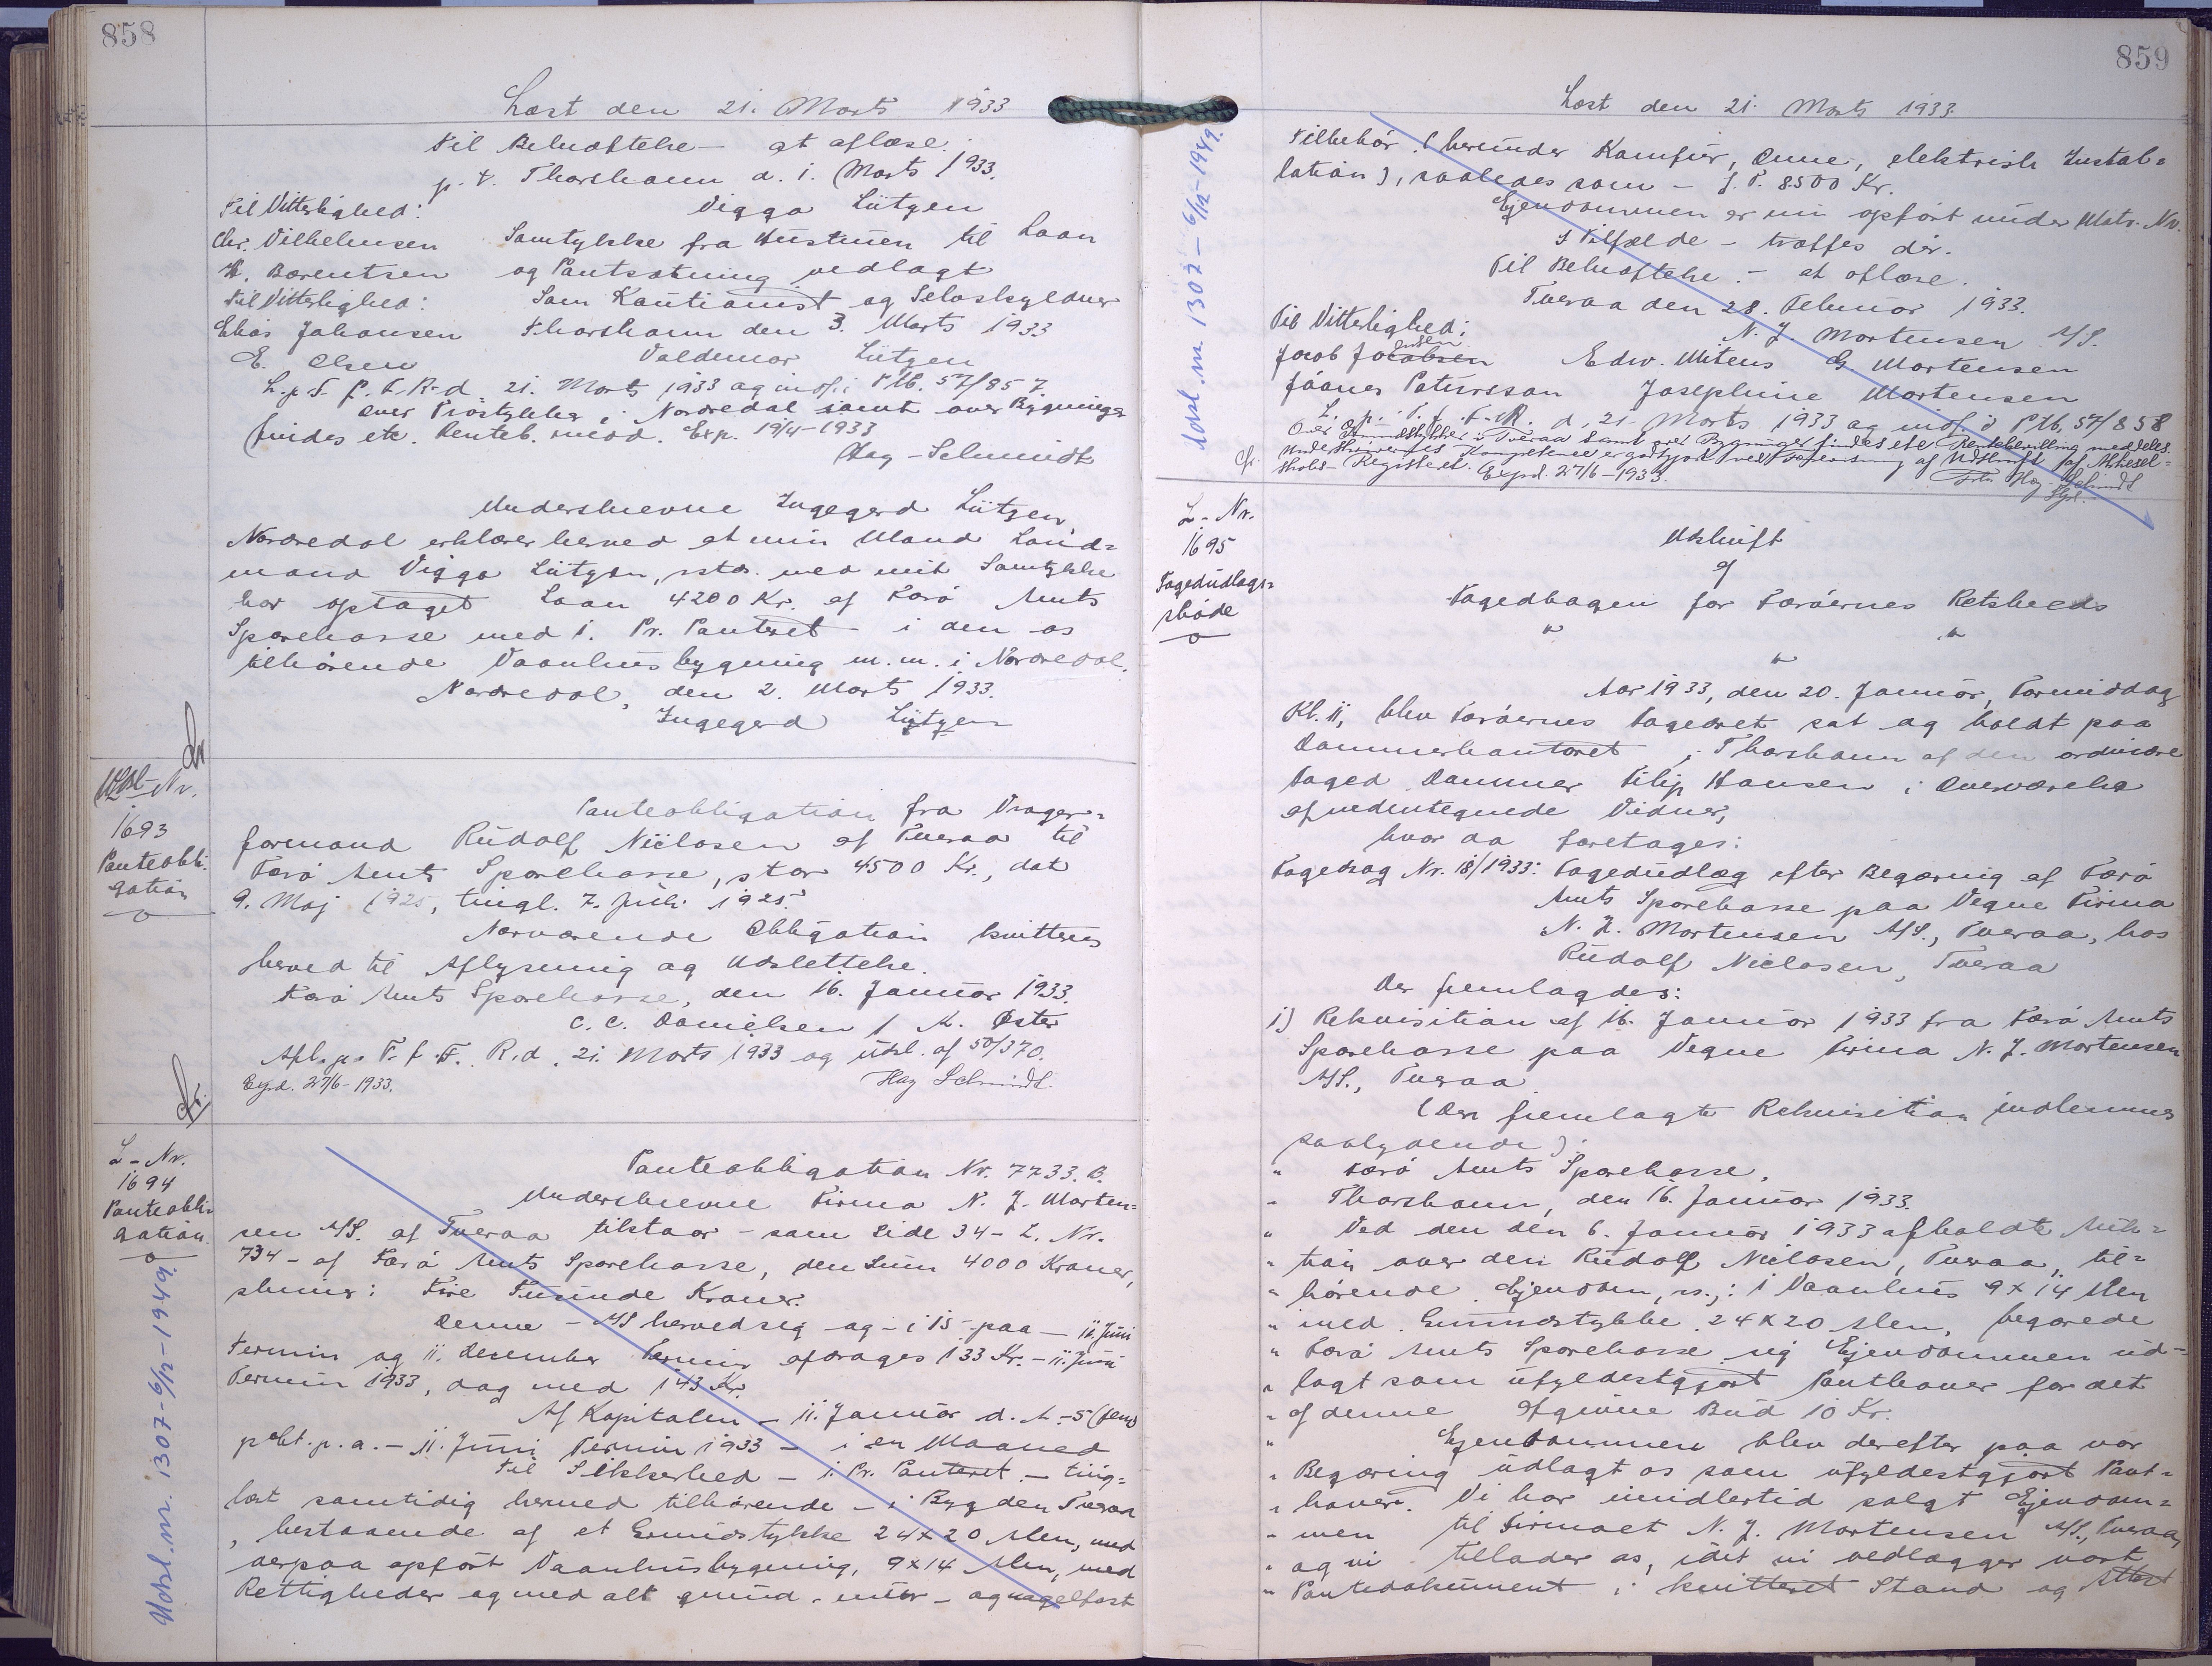 858
Læst den 21. Marts 1933
Til Bekræftelse – at aflæse.
p. t. Thorshavn d. 1. Marts 1933.
Til Vitterlighed:
Viggo Lützen
Chr. Vilhelmsen Samtykke fra Hustruen til Laan
H. Bærentsen og Pantsætning vedlagt
Til Vitterlighed: Som Kautionist og Selvskyldner
Elias Johansen Thorshavn den 3. Marts 1933
E. Olsen Valdemar Lützen
L. p. T. f. F. R. d. 21. Marts 1933 og indf. i Ptb. 57/857
over Træstykke i Nordredal samt over Bygninger
findes etc. Renteb. medd. Exp. 19/4-1933
Hag-Schmidt
Underskrevne Ingegerd Lützen,
Norðredal erklærer herved at min Mand Land=
mand Viggo Lützen, sstds. med mit Samtykke
har optaget Laan 4200 Kr. af Færø Amts
Sparekasse med 1. Pr. Panteret i den os
tilhørende Vaanhusbygning m. m. i Nordredal.
Nordredal, den 2. Marts 1933.
Ingegerd Lützen
Udsl-Nr.
1693
Panteobli-
gation
Panteobligation fra Vrager=
formand Rudolf Niclasen af Tveraa til
Færø Amts Sparekasse, stor 4500 Kr., dat
9. Maj 1925, tingl. 7. Juli 1925.
Nærværende Obligation kvitteres
herved til Aflysning og Udslettelse.
Færø Amts Sparekasse, den 16. Januar 1933.
C. C. Danielsen / M. Øster
Afl. p. T. f. F. R. d. 21. Marts 1933 og udsl. af 50/370.
Expd. 27/6-1933. Hag Schmidt.
L-Nr.
1694
Panteobli=
gation.
Udsl. nr. 1307-6/12-1949.
Panteobligation Nr. 7733. B.
Underskrevne Firma N. J. Morten=
sen A/S. af Tveraa tilstaar – som Side 34 – L. Nr.
734 – af Færø Amts Sparekasse, den Sum 4000 Kroner,
skriver: Fire Tusinde Kroner.
Denne – A/S herved sig og – i 15 – paa – 11. Juni
Termin og 11. December Termin afdrages 133 Kr. – 11. Juni
Termin 1933, dog med 143 Kr.
Af Kapitalen – 11. Januar d. A. – 5 (fem)
pCt. p. a. – 11. Juni Termin 1933 – i en Maaned
Til Sikkerhed – 1. Pr. Panteret – ting=
læst samtidig hermed tilhørende – i Bygden Tveraa
, bestaaende af et Grundstykke 24 x 20 Alen, med
derpaa opført Vaanhusbygning, 9 x 14 Alen, med
Rettigheder og med alt grund-, mur- og nagelfast
859
Læst den 21. Marts 1933.
Udsl. nr. 1307 – 6/12-1949.
Tilbehør (herunder Komfur, Ovne, elektrisk Instal=
lation), saaledes som – f. T. 8500 Kr.
Ejendommen er nu opført under Matr. Nr.
I Tilfælde – træffes dér.
Til Bekræftelse – at aflæse.
Tveraa den 28. Februar 1933.
Til Vitterlighed: N. J. Mortensen A/S.
Jacob Joensen Edw. Mitens G. Mortensen
Jóanes Patursson Josephine Mortensen
L. p. T. f. F. R. d. 21. Marts 1933 og indf. i Ptb. 57/858
Over Grundstykker i Tveraa samt over Bygninger findes etc Rentebevilling meddeles.
Underskrivernes Kompetence er godtgjort ved Forevisning af Udskrift af Aktiesel=
skabs-Registeret. Expd. 27/6-1933. Hag-Schmidt
L-Nr.
1695
Fogedudlægs=
skøde
Udskrift
af
Fogedbogen for Færøernes Retskreds
" "
"
Aar 1933, den 20. Januar, Formiddag
Kl. 11, blev Færøernes Fogedret sat og holdt paa
Dommerkontoret i Thorshavn af den ordinære
Foged Dommer Filip Hansen i Overværelse
af undertegnede Vidner,
hvor da foretages:
Fogedsag Nr. 18/1933: Fogedudlæg efter Begæring af Færø
Amts Sparekasse paa Vegne Firma
N. J. Mortensen A/S., Tveraa, hos
Rudolf Niclasen, Tveraa
Der fremlagdes:
1) Rekvisition af 16. Januar 1933 fra Færø Amts
Sparekasse paa Vegne Firma N. J. Mortensen
A/S., Tveraa
(Den fremlagte Rekvisition indlemmes
saalydende):
" Færø Amts Sparekasse,
" Thorshavn, den 16. Januar 1933.
" Ved den den 6. Januar 1933 afholdte Auk=
" tion over den Rudolf Niclasen, Tveraa, til=
" hørende Ejendom, : 1 Vaanhus 9 x 14 Alen
" med Grundstykke 24 x 20 Alen, begærede
" Færø Amts Sparekasse sig Ejendommen ud=
" lagt som ufyldestgjort Panthaver for det
" af denne afgivne Bud 10 Kr.
" Ejendommen blev derefter paa vor
" Begæring udlagt os som ufyldestgjort Pant=
" haver. Vi har imidlertid solgt Ejendom=
" men til Firmaet N. J. Mortensen A/S., Tveraa,
" og vi tillader os, idet vi vedlægger vort
" Pantedokument i kvitteret Stand og